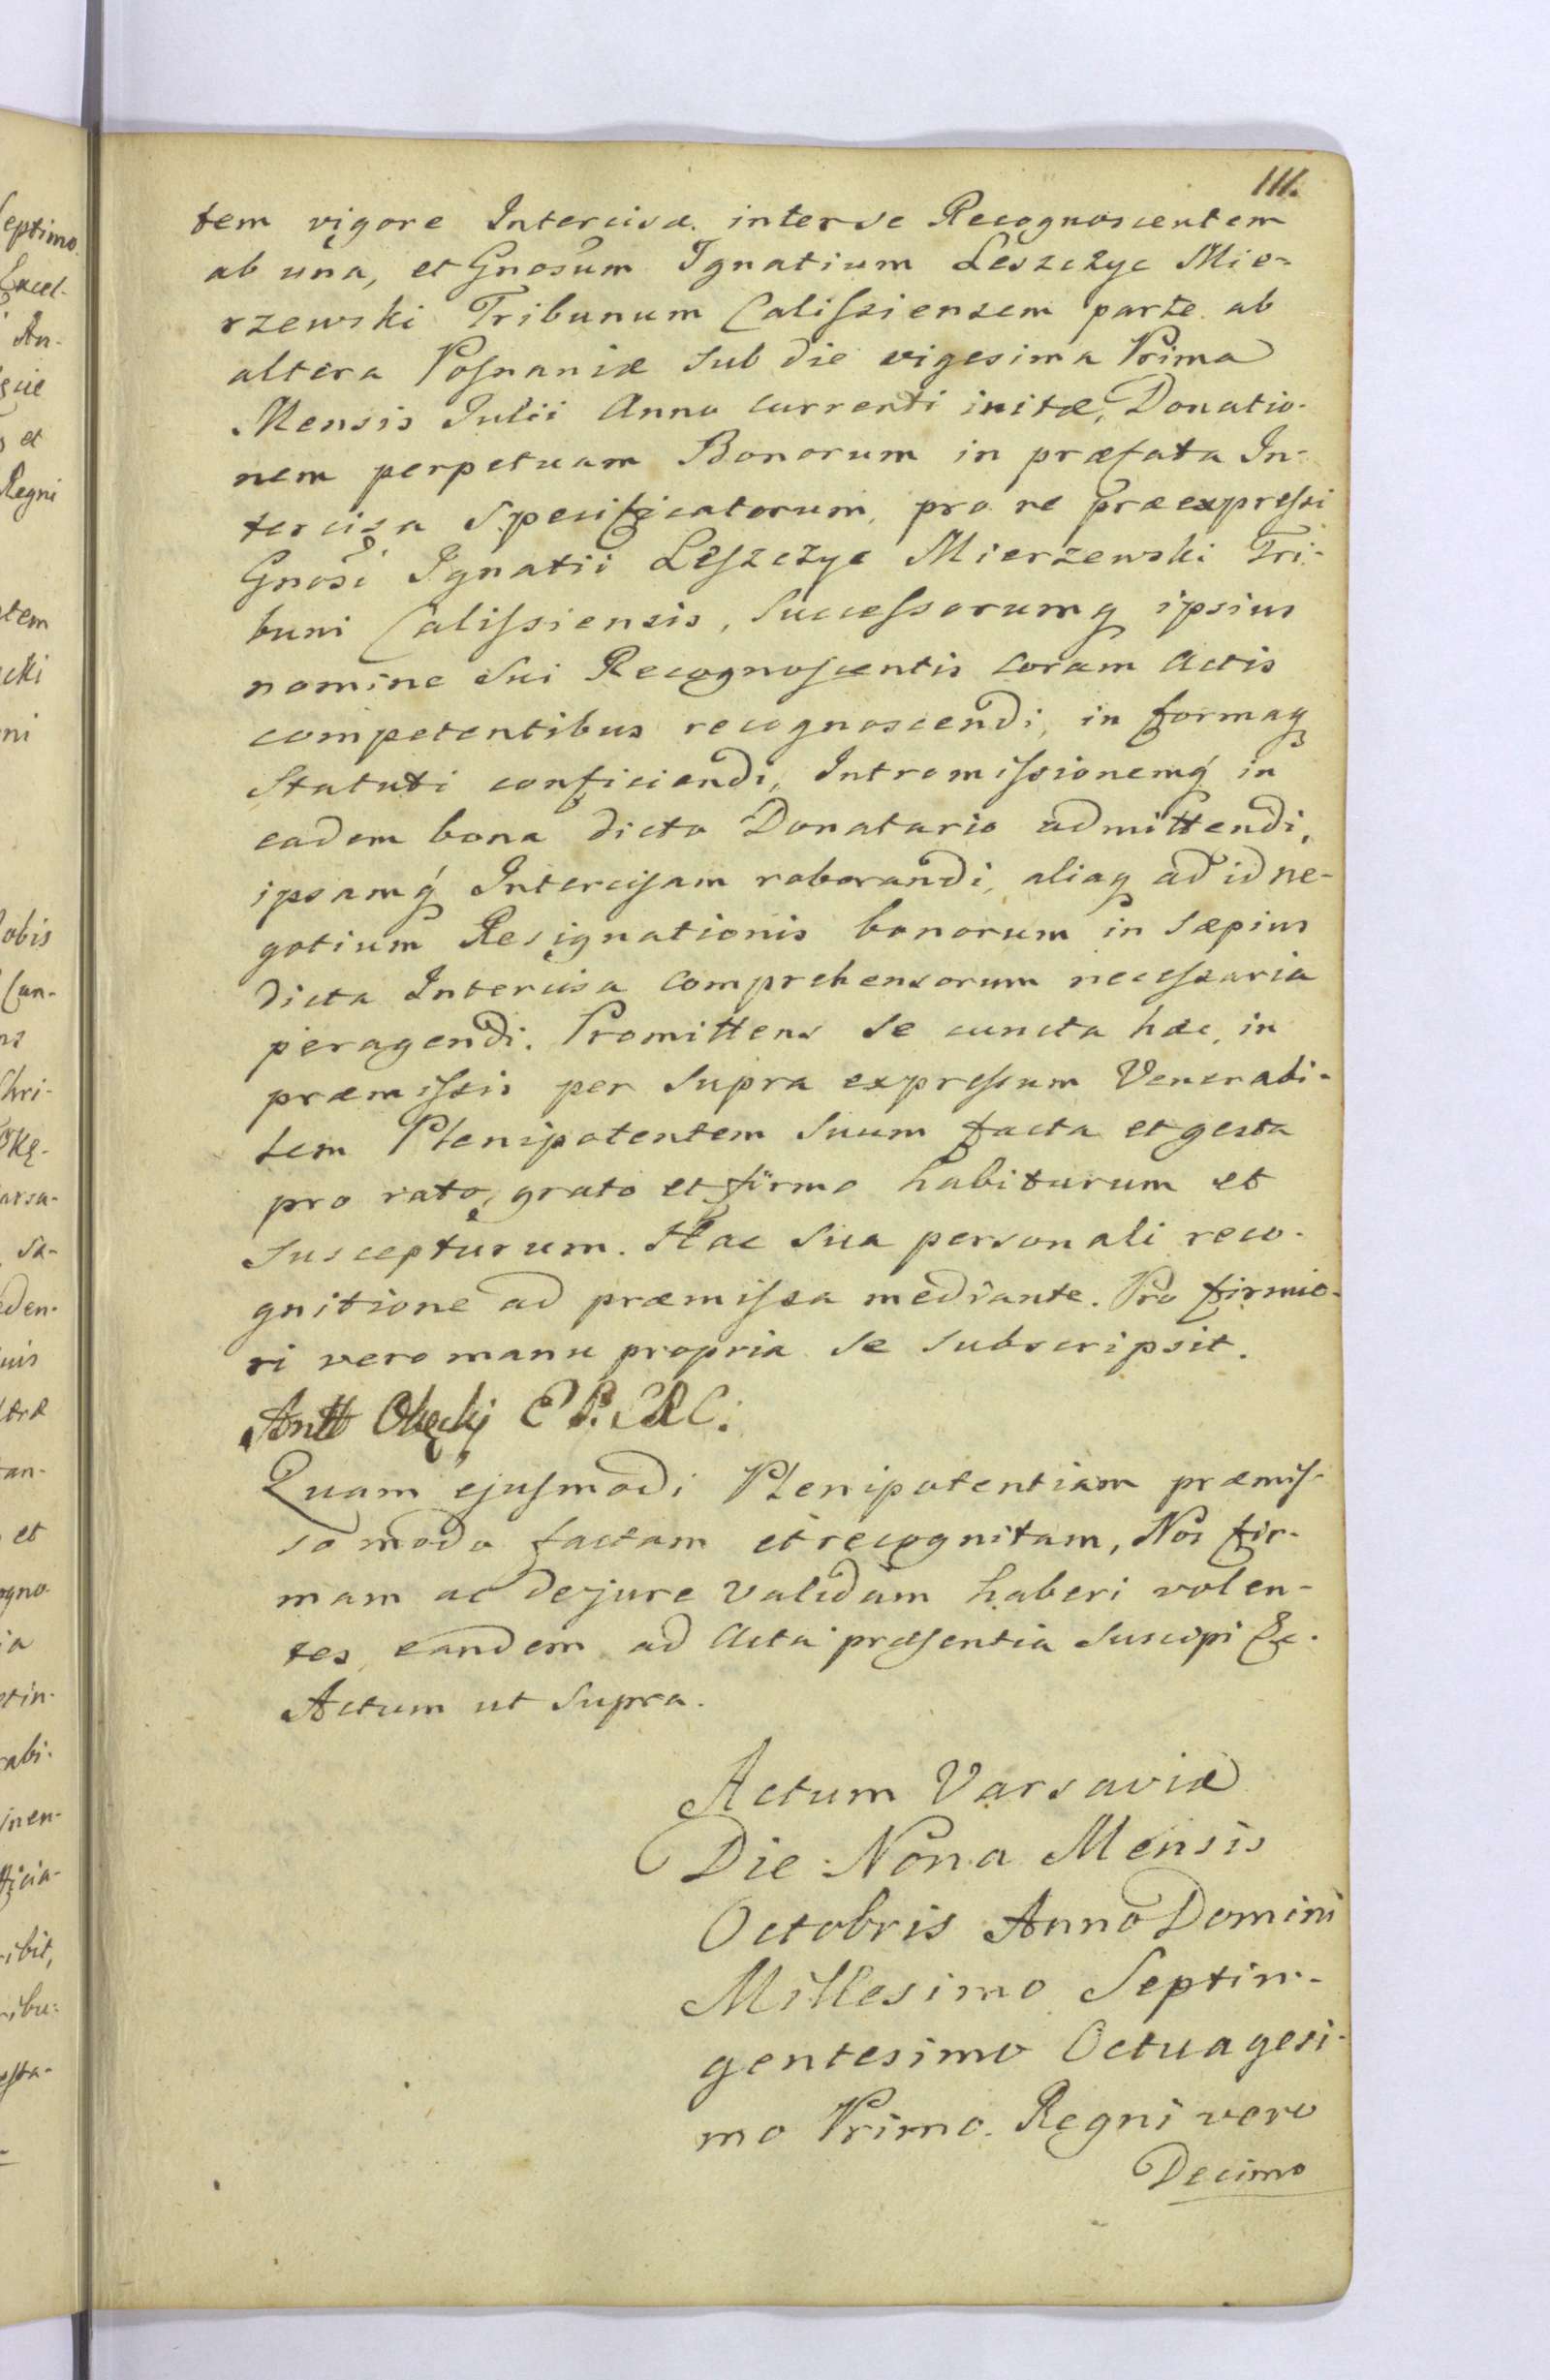 111.
tem vigore Intercisæ inter se Recognoscentem
ab una, et Gnosum Ignatium Leszczyc Mie-
rzewski Tribunum Calissiensem parte ab
altera Posnaniæ sub die vigesima Prima
Mensis Julii Anno currenti initæ, Donatio-
nem perpetuam Bonorum in præfata In-
tercisa Specificatorum, pro re præexpressi
Gnosi Ignatii Leszczyc Mierzewski Tri-
buni Calissiensis, successorumq ipsius
nomine sui Recognoscentis coram Actis
competentibus recognoscendi, in formaq
Statuti conficiendi, Intromissionemq in
eadem bona dicto Donatario admittendi,
ipsamq Intercisam roborandi, aliaq ad id ne-
gotium Resignationis bonorum in sæpius
dicta Intercisa comprehensorum necessaria
peragendi. Promittens se cuncta hæc, in
præmissis per supra expressum Venerabi-
lem Plenipotentem suum facta et gesta
pro rato, grato et firmo habiturum et
suscepturum. Hac sua personali reco-
gnitione ad præmissa mediante. Pro firmio-
ri vero manu propria se subscripsit.
Antt Okęckj E P. C R C.
Quam ejusmodi Plenipotentiam præmis-
so modo factam et recognitam, Nos fir-
mam ac de jure validam haberi volen-
tes eandem ad Acta præsentia suscipi &c.
Actum ut supra.
Actum Varsaviæ
Die Nona Mensis
Octobris Anno Domini
Millesimo Septin-
gentesimo Octuagesi-
mo Primo. Regni vero
Decimo